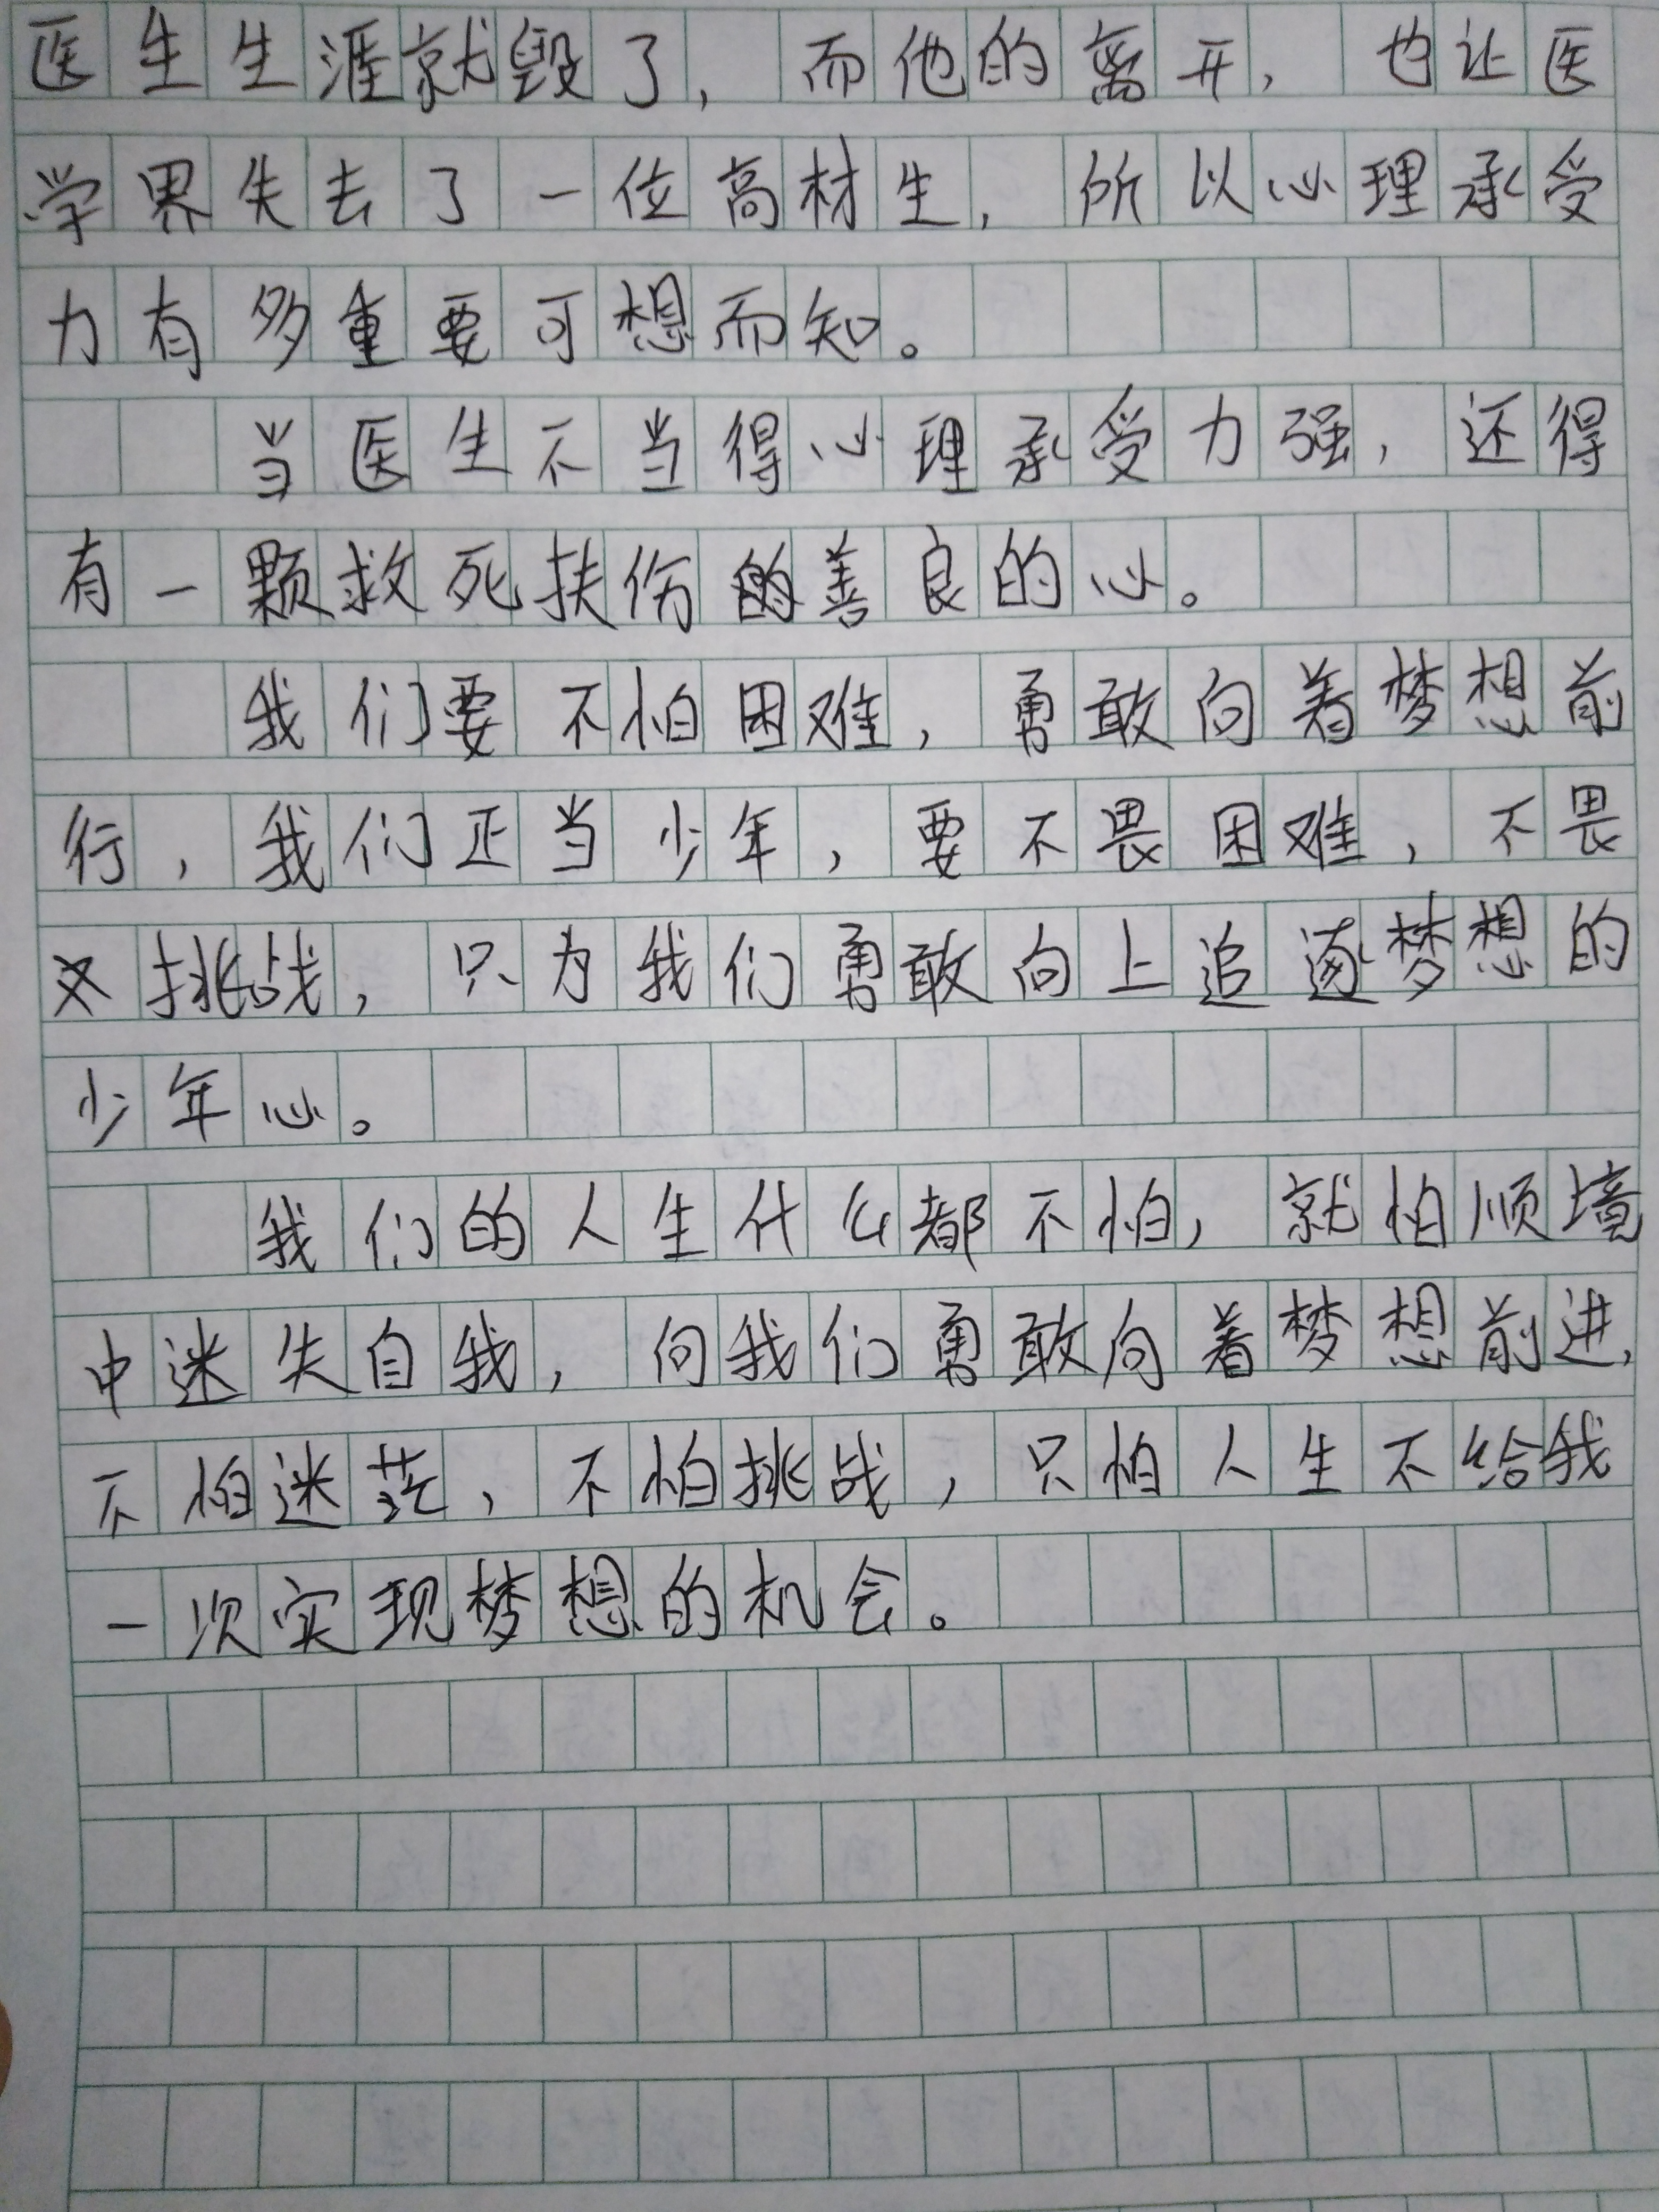 医生生涯就毁了，而他的离开，也让医
学界失去了一位高材生，所以心理承受
力有多重要可想而知。
当医生不当得心理承受力强，还得
有一颗救死扶伤的善良的心。
我们要不怕困难，勇敢向着梦想前
行，我们正当少年，要不畏困难，不畏
挑战，只为我们勇敢向上追逐梦想的
少年心。
我们的人生什么都不怕，就怕顺境
中迷失自我，向我们勇敢向着梦想前进，
不怕迷茫，不怕挑战，只怕人生不给我
一次实现梦想的机会。